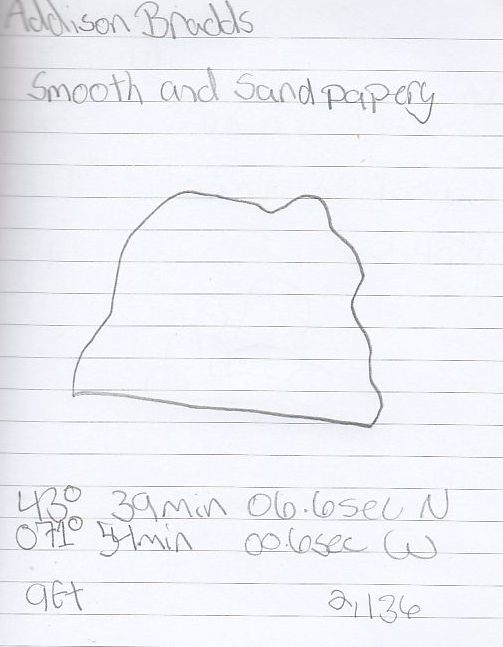 Addison Bradds
Smooth and Sandpapery
43° 39min 06.6sec N
071° 51min 00.6sec W
9ft
2,136